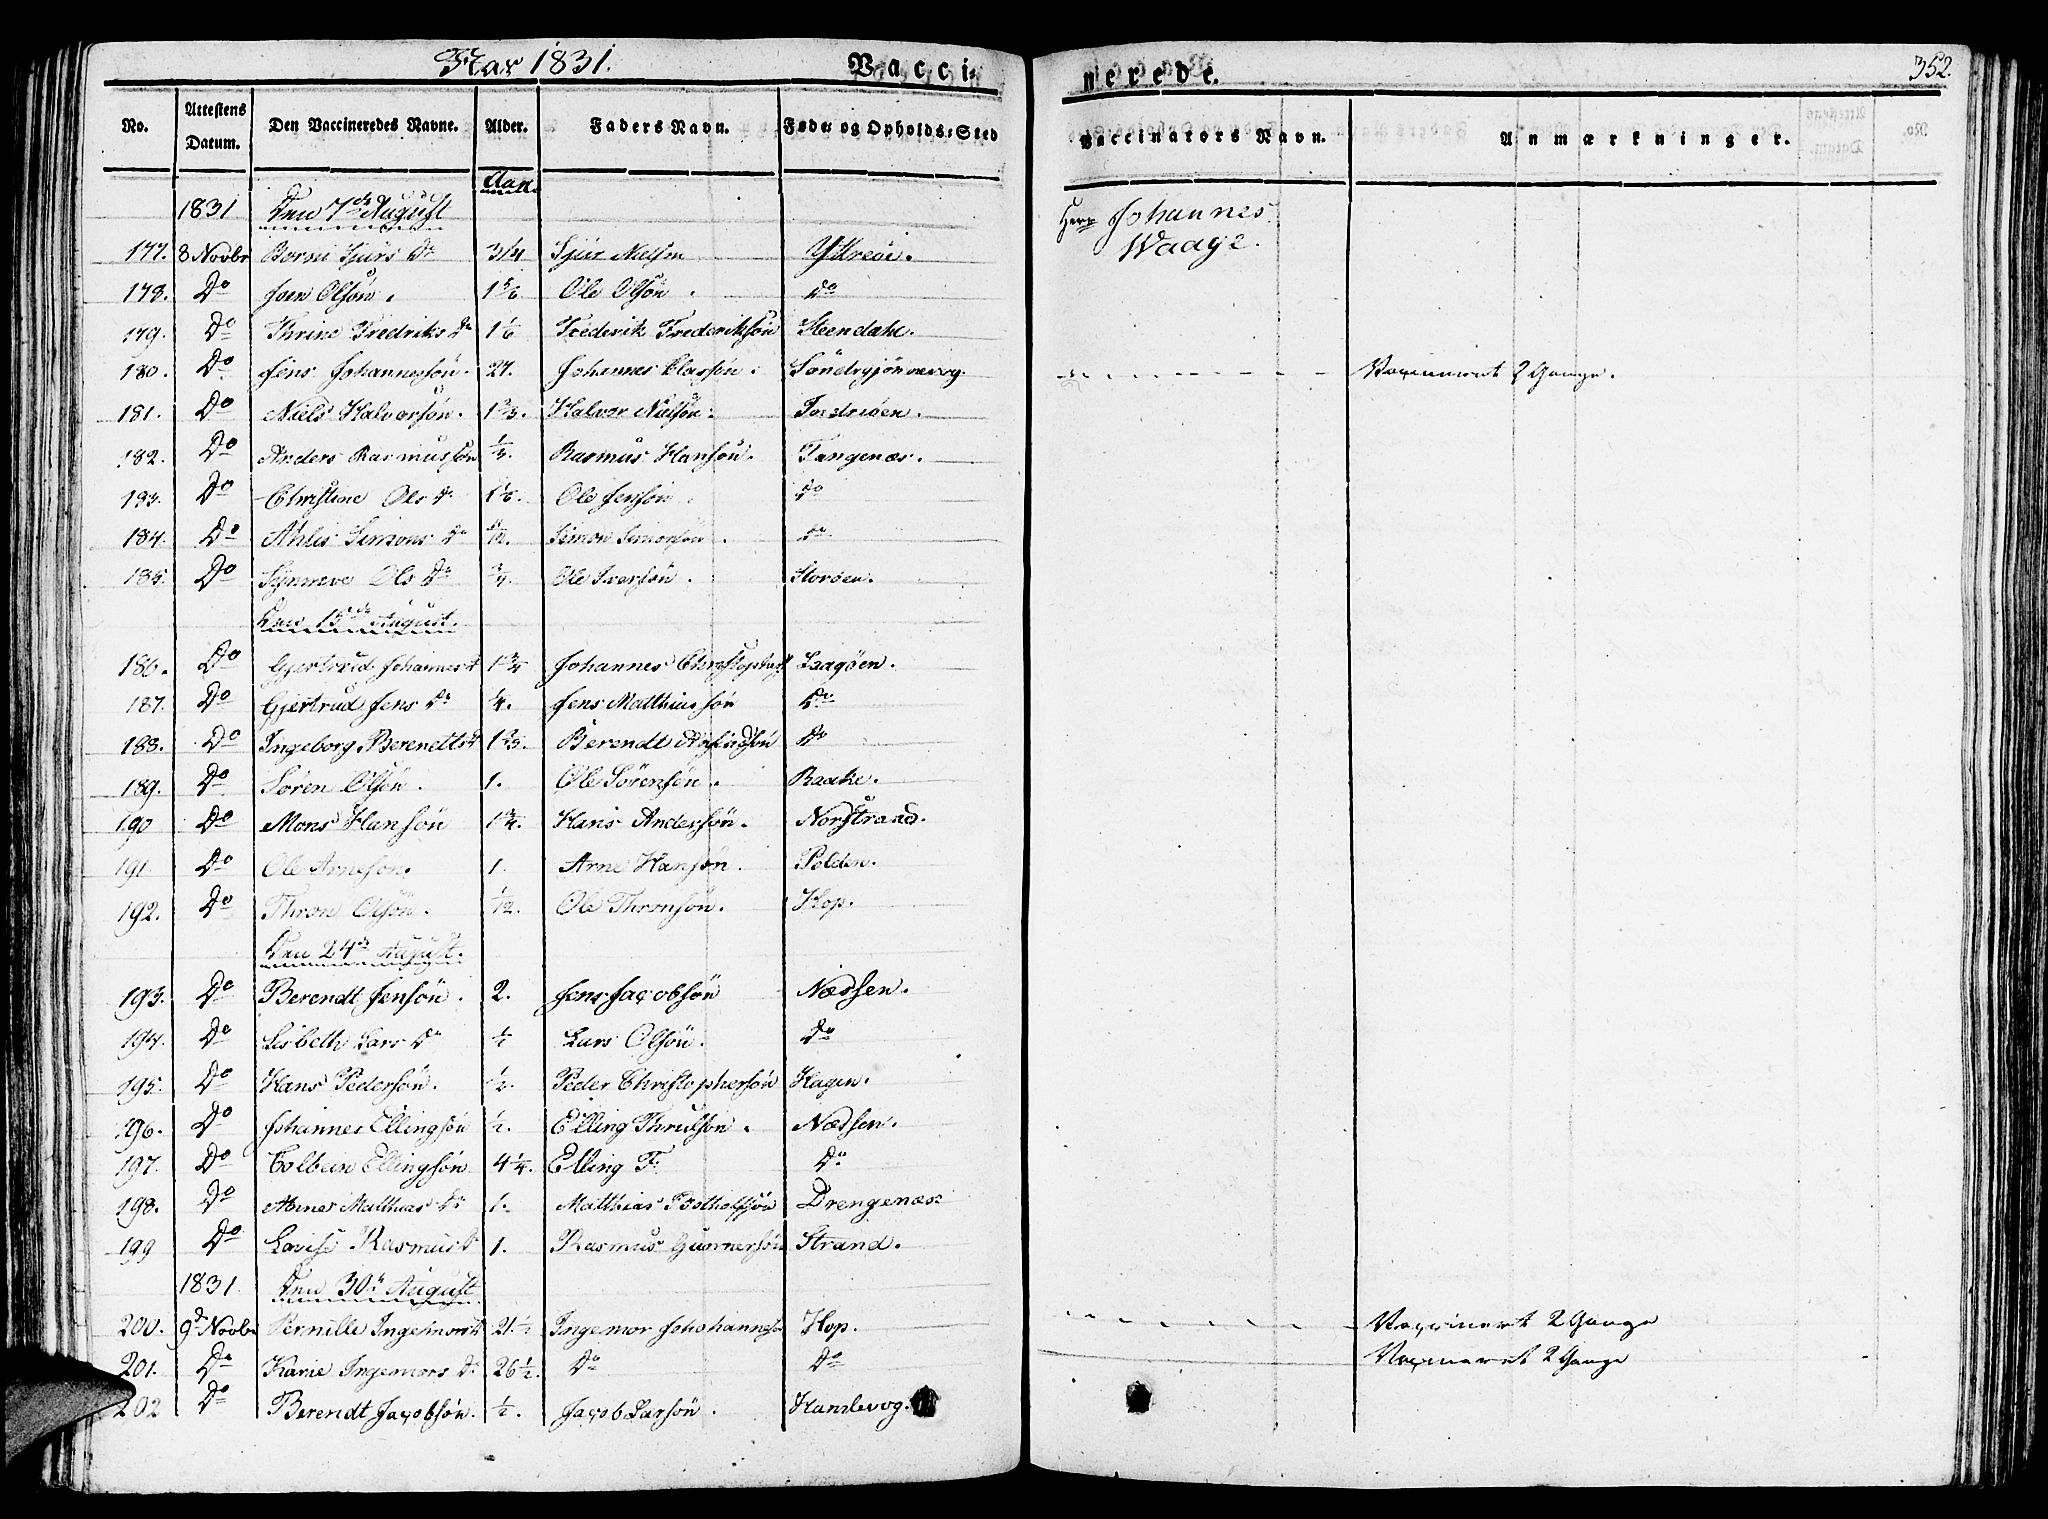 Aar 1831. Vacci- nerede. 352.
No. Attestens Datum. Den Vaccineredes Navne. Alder. Faders Navn. Føde- og Opholds-Sted Vaccinators Navn. Anmærkninger.
Aar.
1831 Den 7de August Herr Johannes
177. 8 Novbr Sjurs Dr 3/4 Sjur Ytreøe. Waage.
178. Do Joen Olsøn. 1 5/6 Ole Olsøn. Do
179. Do Thrine Fredriks Dr 1 1/6 Frederik Frederiksøn Steendahl.
180. Do Jens Johannessøn. 27. Johannes Clasøn. Vaccineret 2 Gange.
181. Do Niels Halvorsøn. 1 2/3. Halvor Nielsøn. Indreøen.
182. Do Anders Rasmussøn 1/3. Rasmus Hansøn. Tangenæs.
183. Do Christine Ols Dr 1 1/6. Ole Jensøn. Do
184. Do Ahlis Simons Dr Simon Simonsøn. Do
185. Do Synneve Ols Dr 3/4. Ole Iversøn. Storøen.
Den 15de August.
186. Do Gjertrud Johannes D 1 3/4 Johannes Laagøen.
187. Do Gjertrud Jens Dr 1/4. Jens Matthiassøn Do
188. Do Ingeborg Berentts D 1 2/3. Berendt Do
189. Do Søren Olsøn. 1. Ole Sørensøn. Baake.
190 Do Mons Hansøn 1 3/4. Hans Andersøn. Nordstrand.
191 Do Ole Arnesøn. 1. Arne Hansøn. Polden.
192. Do Thron Olsøn. 1/12. Ole Thronsøn. Hop.
Den 24de August.
193. Do Berendt Jensøn. 2. Jens Jacobsøn Nædsen.
194. Do Lisbeth Lars Dr 1/2 Lars Olsøn. Do
195. Do Hans Pedersøn. 1/2. Peder Christophersøn Hagen.
196. Do Johannes Ellingsøn 1/2. Elling Thrulsøn. Nædsen.
197. Do Colbein Ellingsøn 4 1/4. Elling T: Do
198. Do Matthias Dr 1. Matthias Botholfsøn Drengenæs.
199 Do Lovise Rasmus D 1. Rasmus Gunnersøn Strand.
1831. Den 30te August
200. 9d Novbr Pernille Ingemors D 21 1/2 Ingemor Johannessøn Hop. Vaccineret 2 Gange
201. Do Karie Ingemors Dr 26 1/2. Do Do Vaccineret 2 Gange
202 Do Berendt Jacobsøn. 1/2. Jacob Larsøn. Handevog.